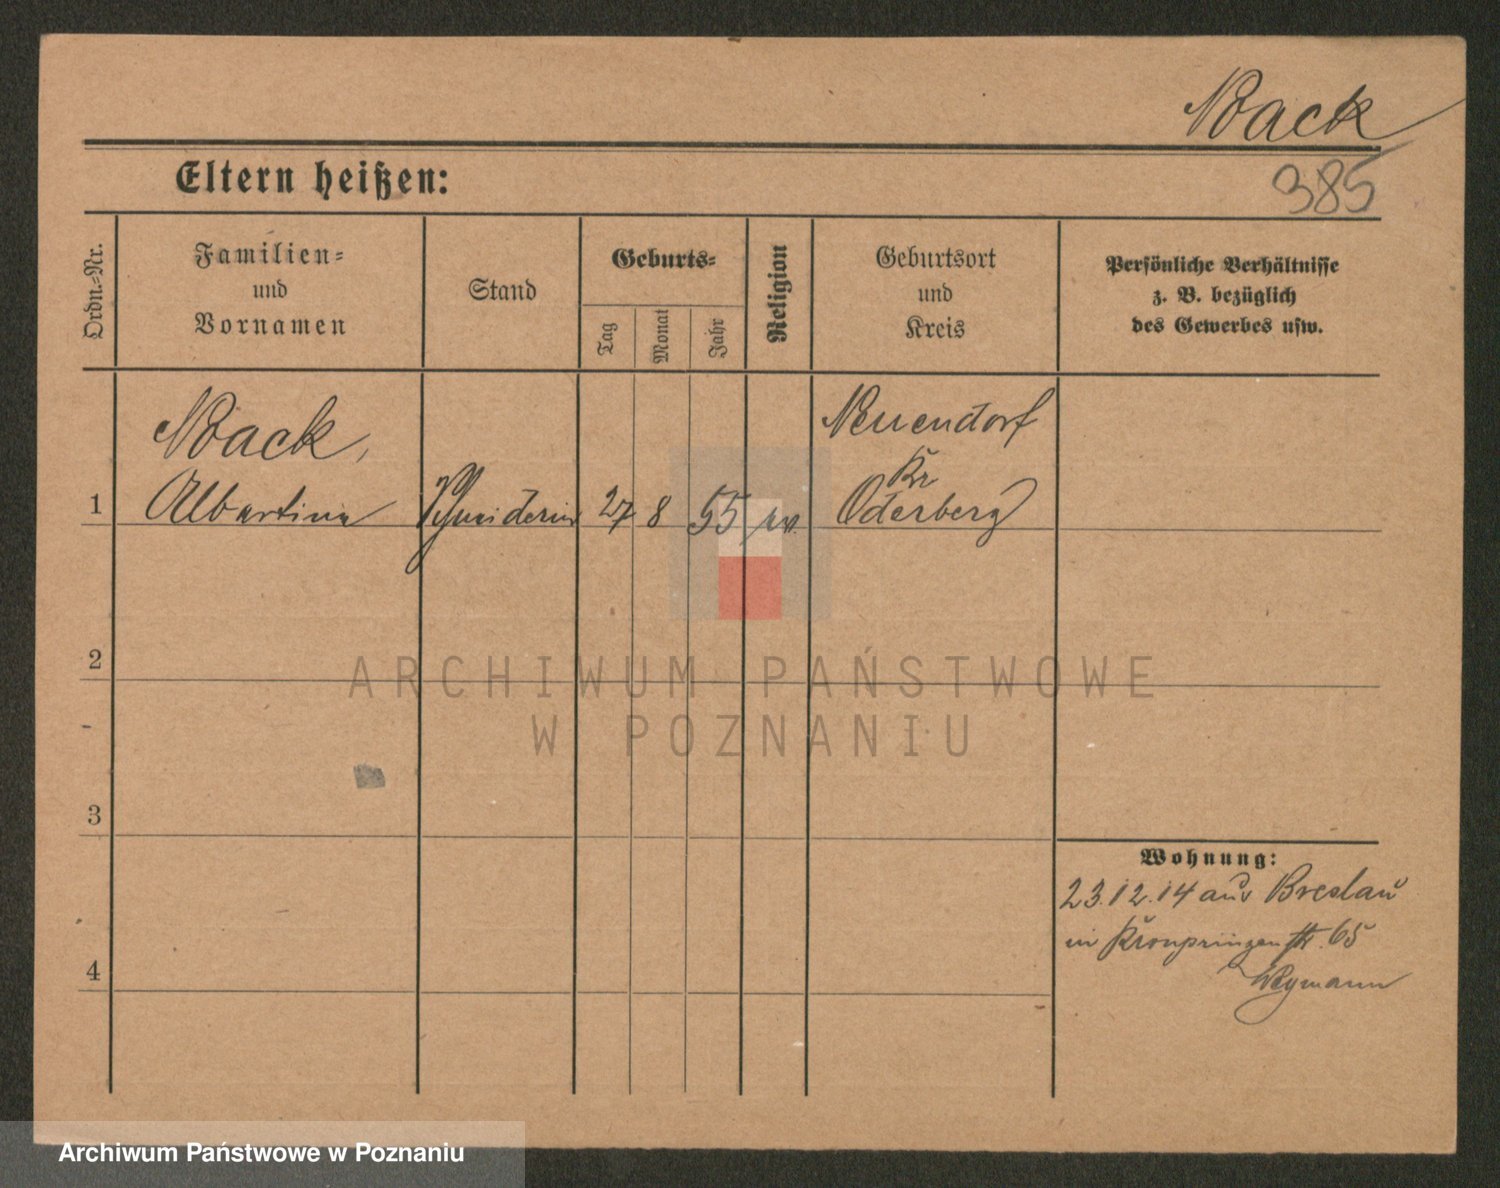 Noack
385
Eltern heißen:
Ordn.-Nr.
Familien-
und
Vornamen
Stand
Geburts-
Tag
Monat
Jahr
Religion
Geburtsort
und
Kreis
Persönliche Verhältnisse
z. B. bezüglich
des Gewerbes usw.
1
Noack,
Albertine
Schneiderin
27
8
55
ev.
Neuendorf
Kr
Oderberg
2
3
4
ARCHIWUM PAŃSTWOWE
W POZNANIU
Wohnung:
23.12.14 aus Breslau
in Kronprinzenstr. 65
Weymann
Archiwum Państwowe w Poznaniu